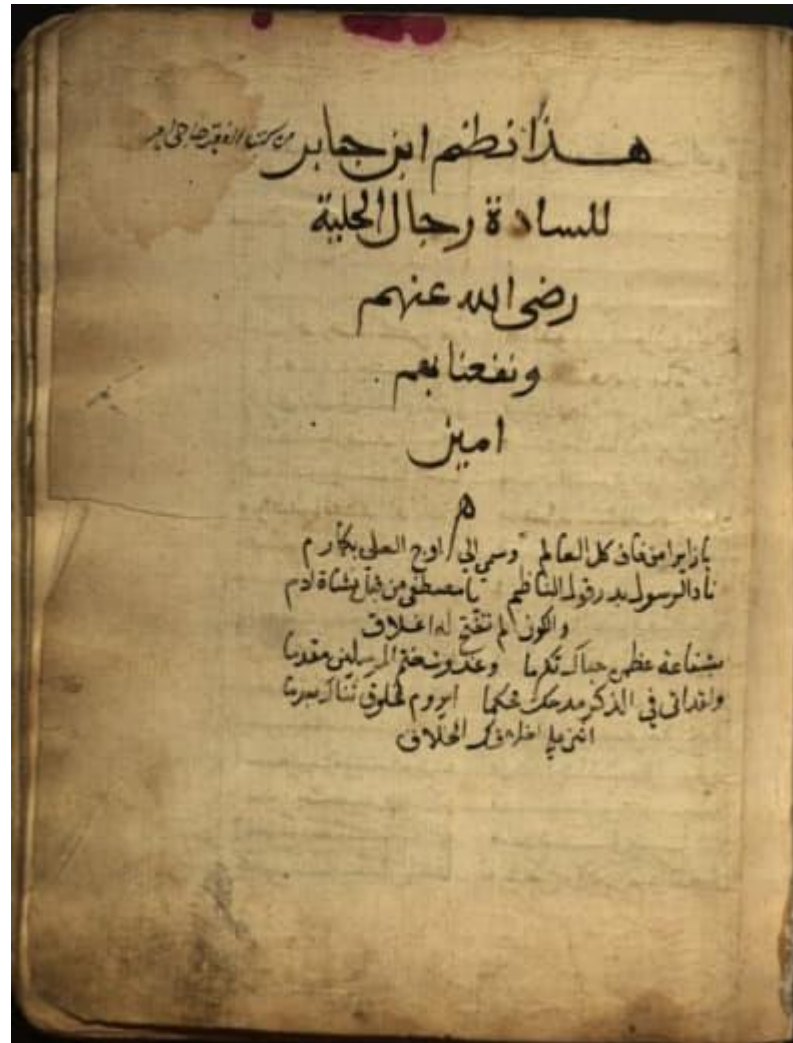 هذا نظم ابن جابر
من كتب
للسادة رجال الحلية
رضي الله عنهم
ونفعنا بهم
امين
ه
يا زايرا من فاق كل العالم وسمي الى اوج العلى بمكارم
ناد الرسول بدر قول الناظم يا مصطفى من قبل نشاة ادم
والكون لم تفتح له اغلاق
بشفاعة عظمى حباك تكرما وغدوت ختم المرسلين مقدما
ولقد اتى في الذكر مدحك محكما ايروم مخلوق ثناك
اثنى على اخلاقك الخلاق